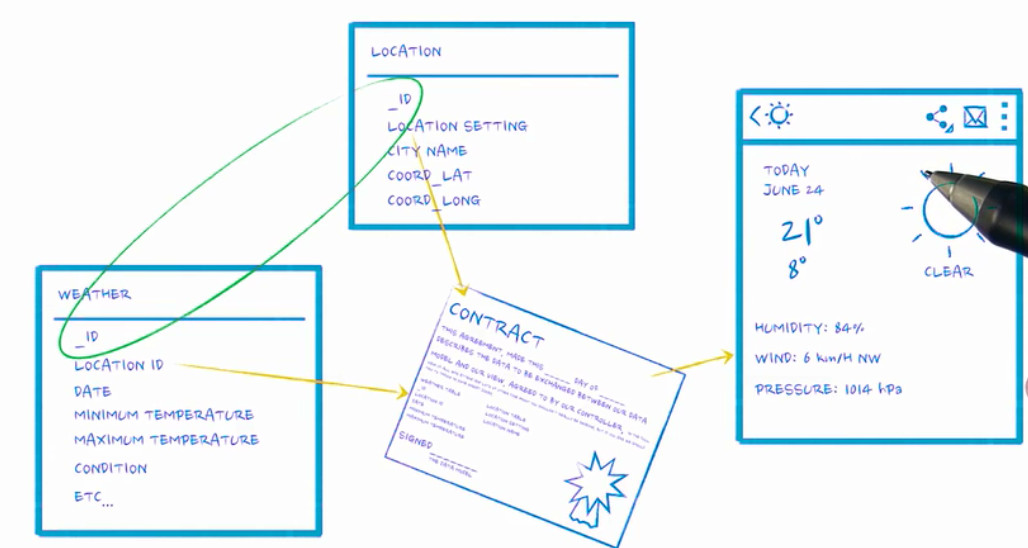 LOCATION
_ID
LOCATION SETTING
CITY NAME
COORD_LAT
COORD_LONG
WEATHER
_ID
LOCATION ID
DATE
MINIMUM TEMPERATURE
MAXIMUM TEMPERATURE
CONDITION
ETC...
CONTRACT
THIS AGREEMENT, MADE THIS ______ DAY OF ______
DESCRIBES THE DATA TO BE EXCHANGED BETWEEN OUR DATA
MODEL AND OUR VIEW, AGREED TO BY OUR CONTROLLER,
WEATHER TABLE
_ID
LOCATION ID
DATE
MINIMUM TEMPERATURE
MAXIMUM TEMPERATURE
LOCATION TABLE
LOCATION SETTING
LOCATION NAME
SIGNED
THE DATA MODEL
TODAY
JUNE 24
21°
8°
CLEAR
HUMIDITY: 84%
WIND: 6 km/H NW
PRESSURE: 1014 hPa